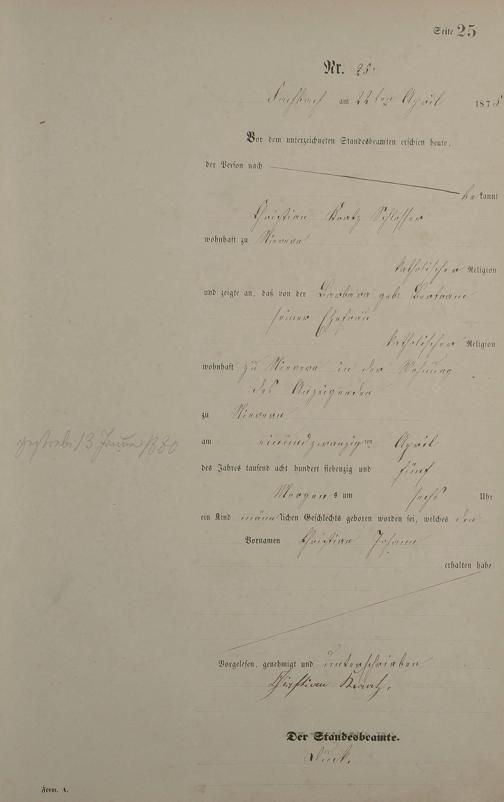 Seite 25
Nr. 25.
Fachbach am 22ten April 1875
Vor dem unterzeichneten Standesbeamten erschien heute,
der Person nach
bekannt
Christian Kratz Schlosser
wohnhaft zu Nievern
katholischer Religion
und zeigte an, daß von der Barbara geb. Bertram
seiner Ehefrau
katholischer Religion
wohnhaft zu Nievern in der Wohnung
des Anzeigenden
zu Nievern
am einundzwanzigten April
des Jahres tausend acht hundert siebenzig und fünf
Morgens um sechs Uhr
ein Kind männlichen Geschlechts geboren worden sei, welches den
Vornamen Christian Johann
erhalten habe
gestorb. 13 1880
Vorgelesen, genehmigt und unterschrieben
Christian Kratz.
Der Standesbeamte.
Form. A.